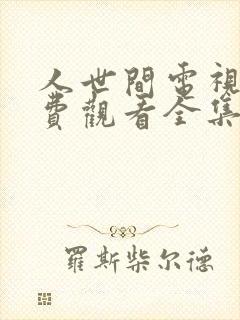 人世間電視
費觀看全集
羅斯柴尔德